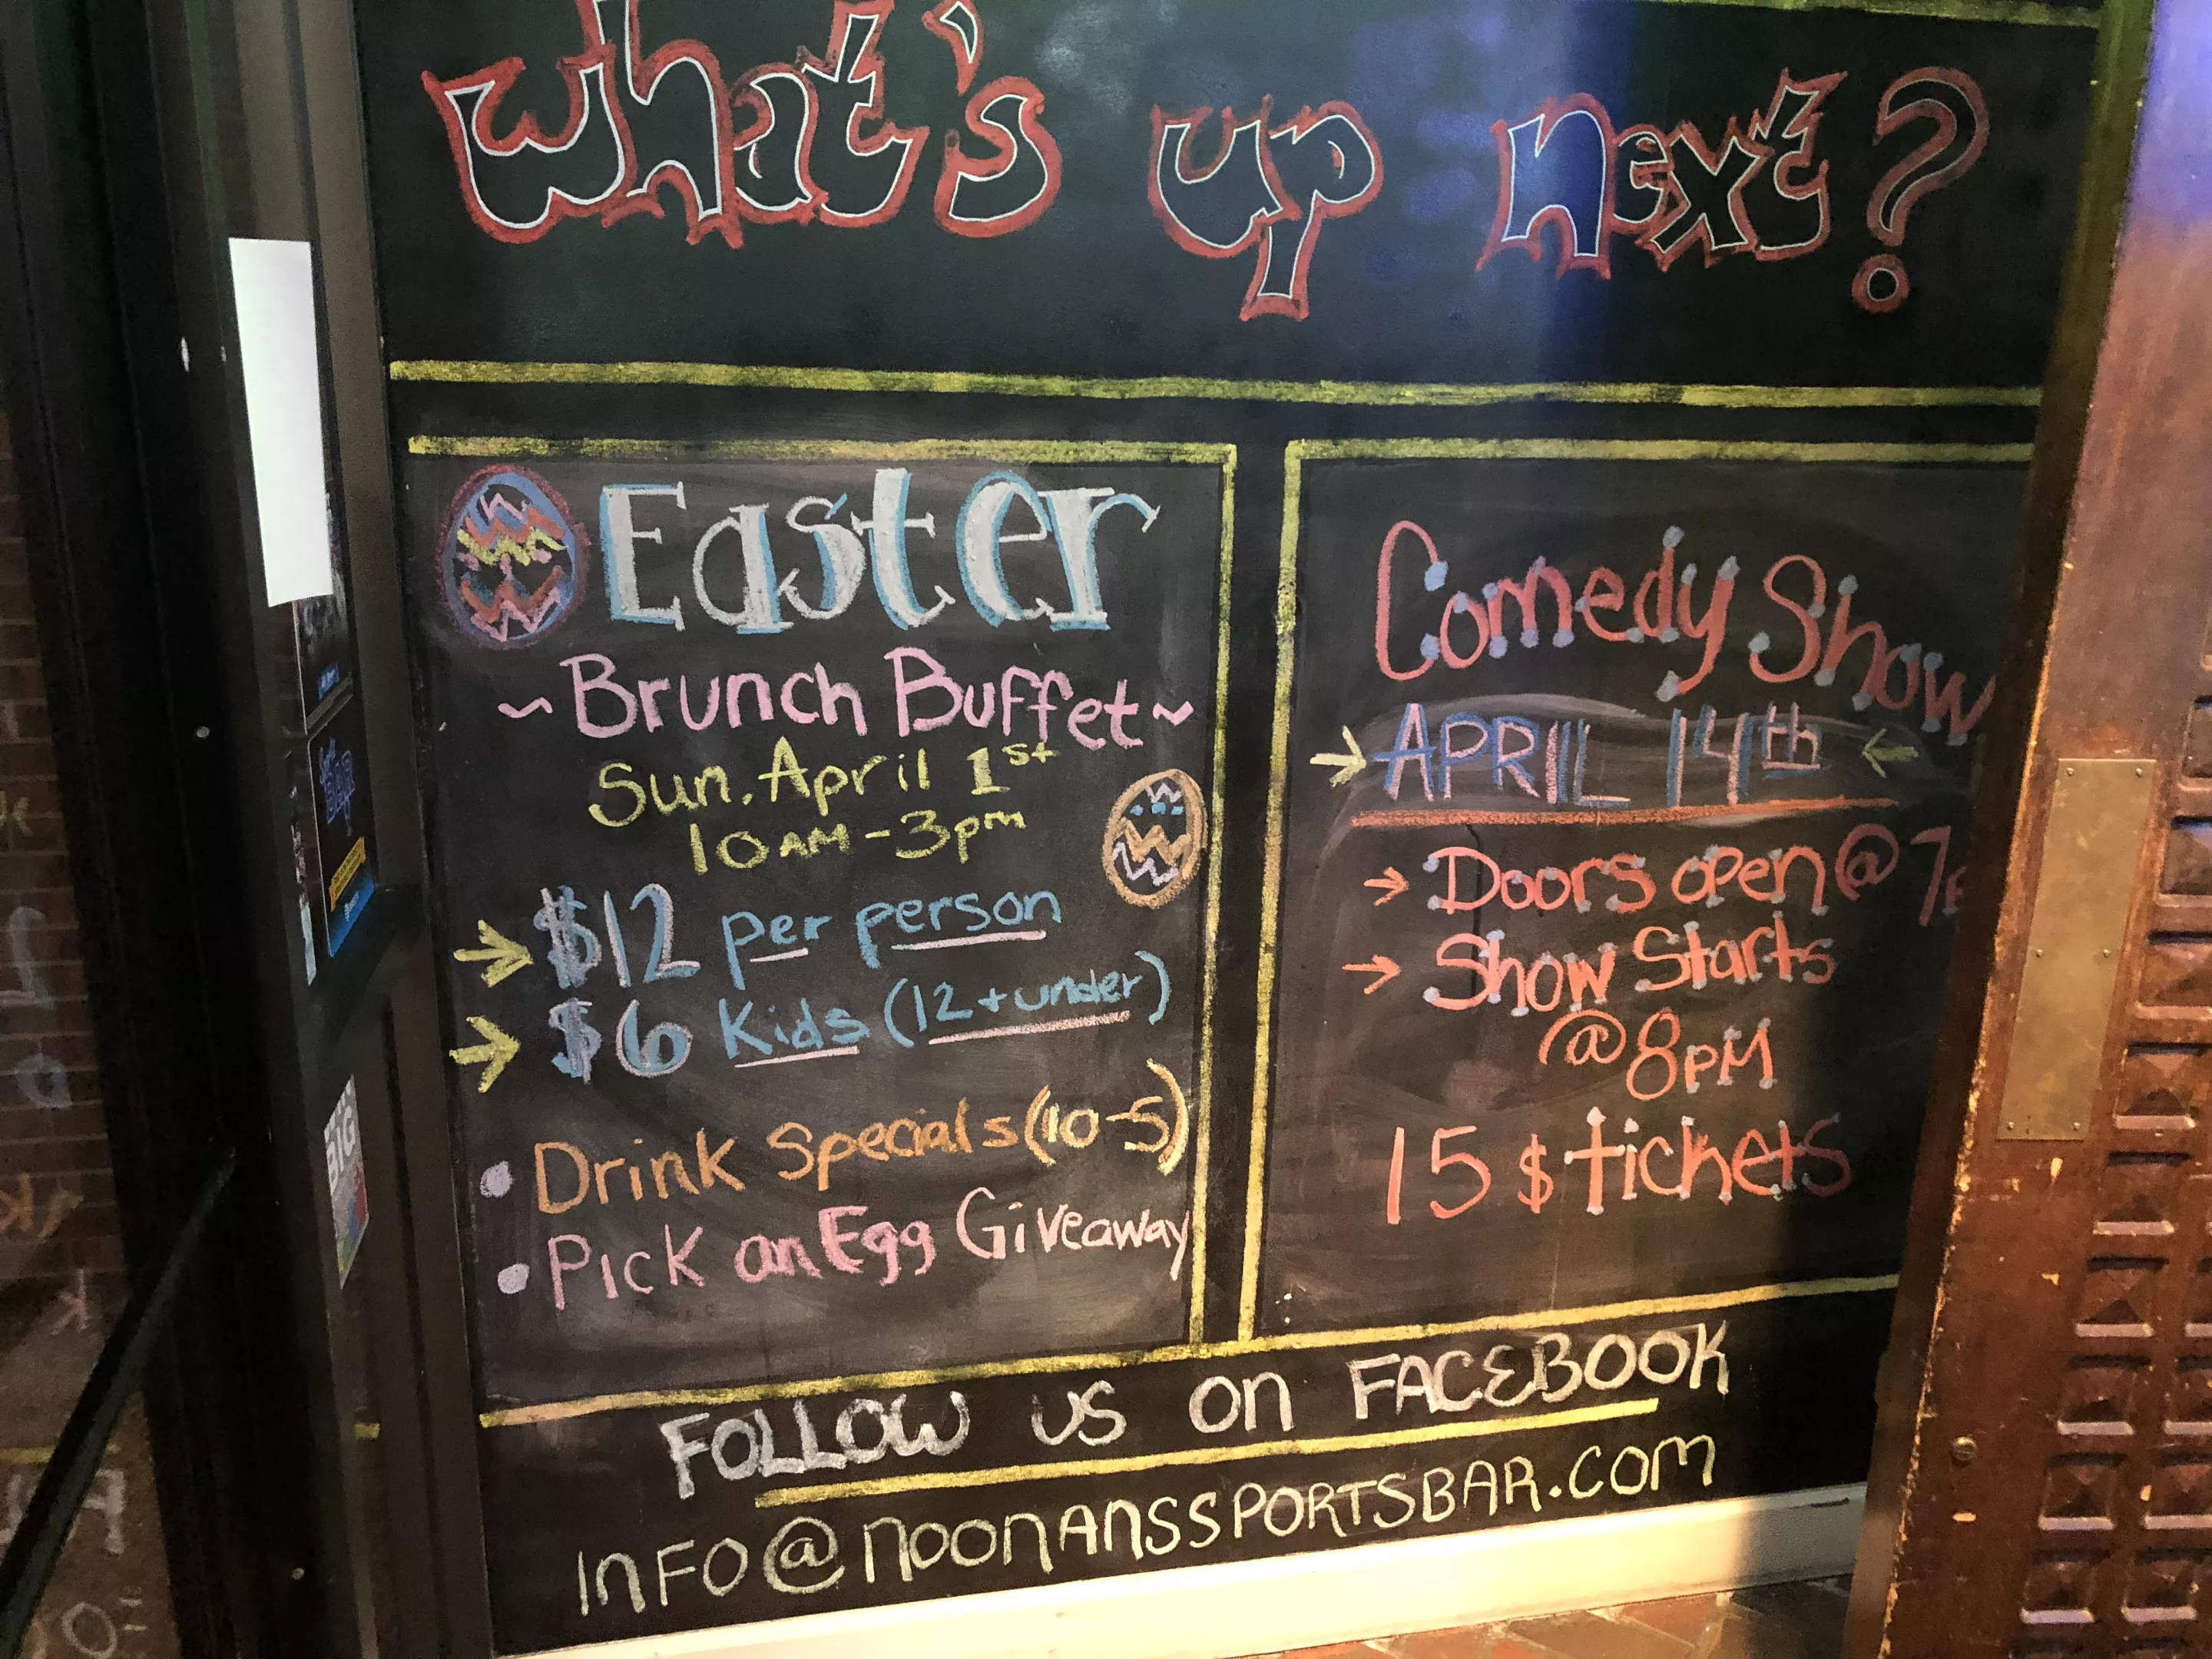 What's up next?
Easter
~Brunch Buffet~
Sun. April 1st
10AM-3pm
→ $12 per person
→ $6 Kids (12+under)
• Drink Specials (10-5)
• Pick an Egg Giveaway
Comedy Show
→ APRIL 14th ←
→ Doors open @ 7
→ Show Starts
@8PM
15$ tickets
FOLLOW US ON FACEBOOK
INFO@NOONANSSPORTSBAR.COM
BIG